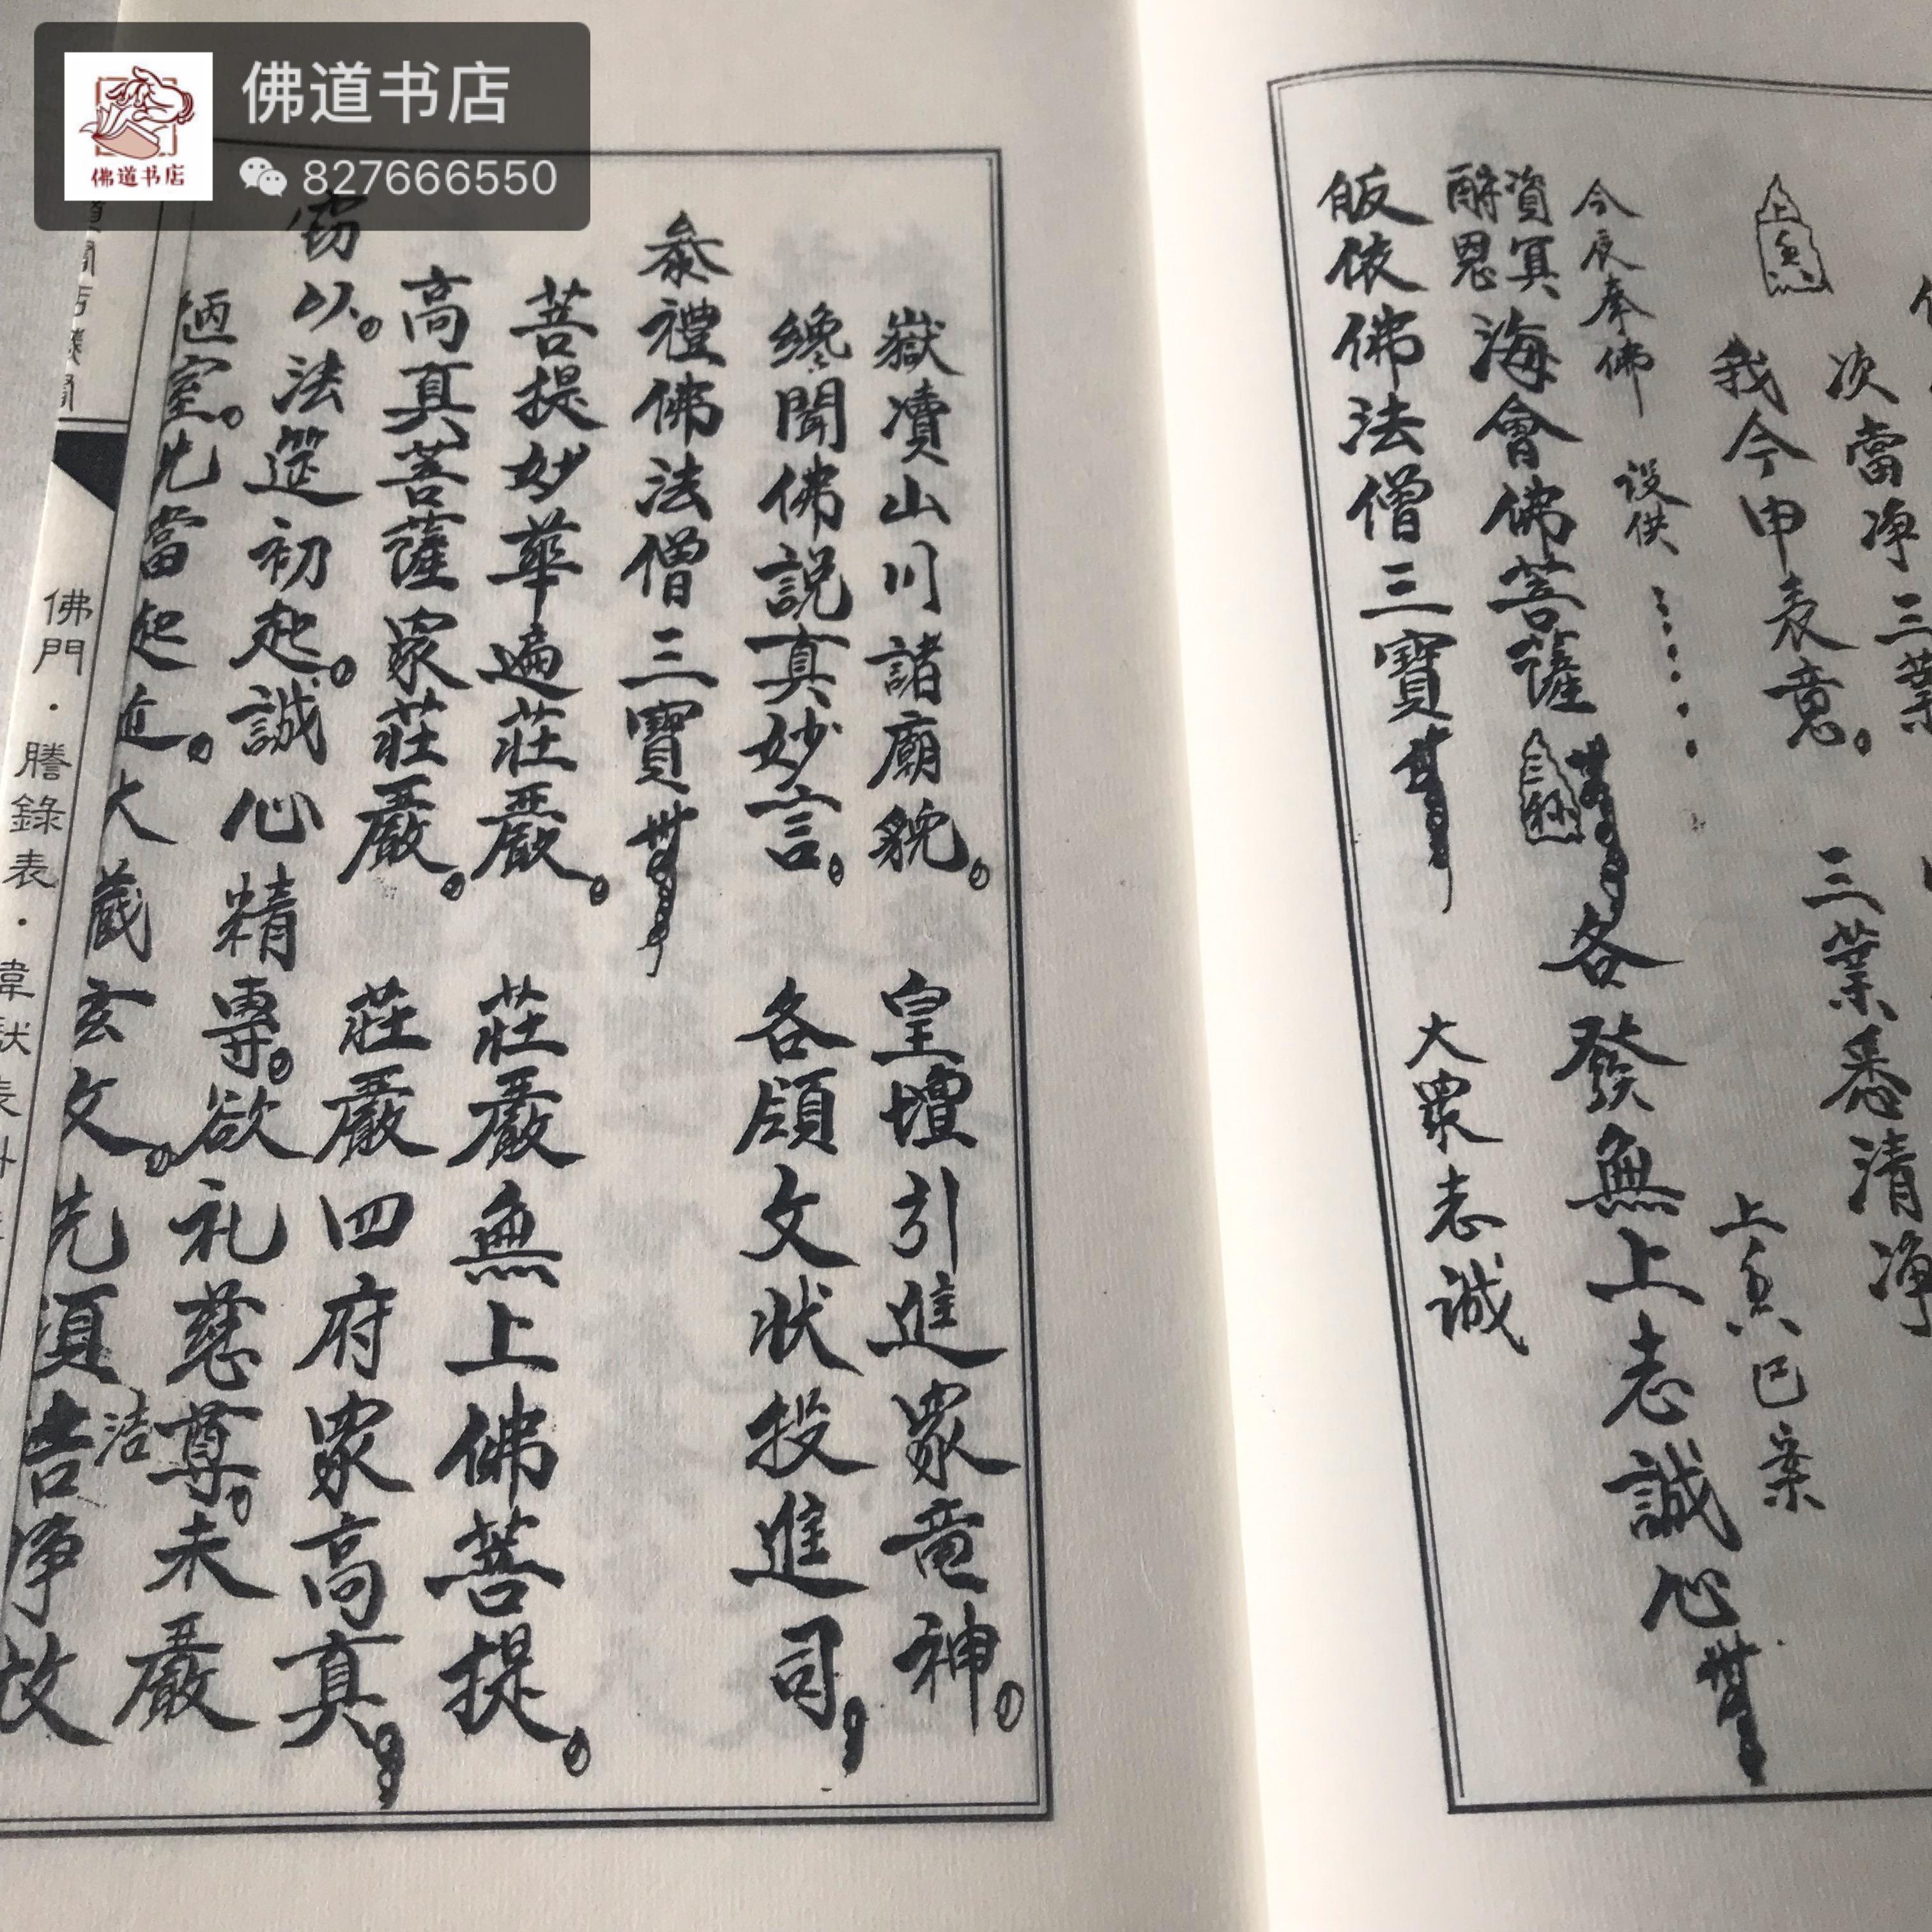 佛道书店
佛道书店
827666550
次當净三業
三業悉清净
上香
我今申表意。
上香已案
今夜奉佛 设供
資冥
酧恩
海會佛菩薩
三称
各發無上志誠心
皈依佛法僧三寶
大眾志誠
嶽瀆山川諸廟貌。 皇壇引進眾竜神。
纔聞佛說真妙言。 各頋文状投進司
叅禮佛法僧三寶
菩提妙華遍莊嚴。 莊嚴無上佛菩提。
高真菩薩眾莊嚴。 莊嚴四府眾高真
窃以。法筵初起。誠心精專。欲礼慈尊。未嚴
洁
室。先當起近。大藏玄文。先須告净故
佛門·謄錄表·韋馱表